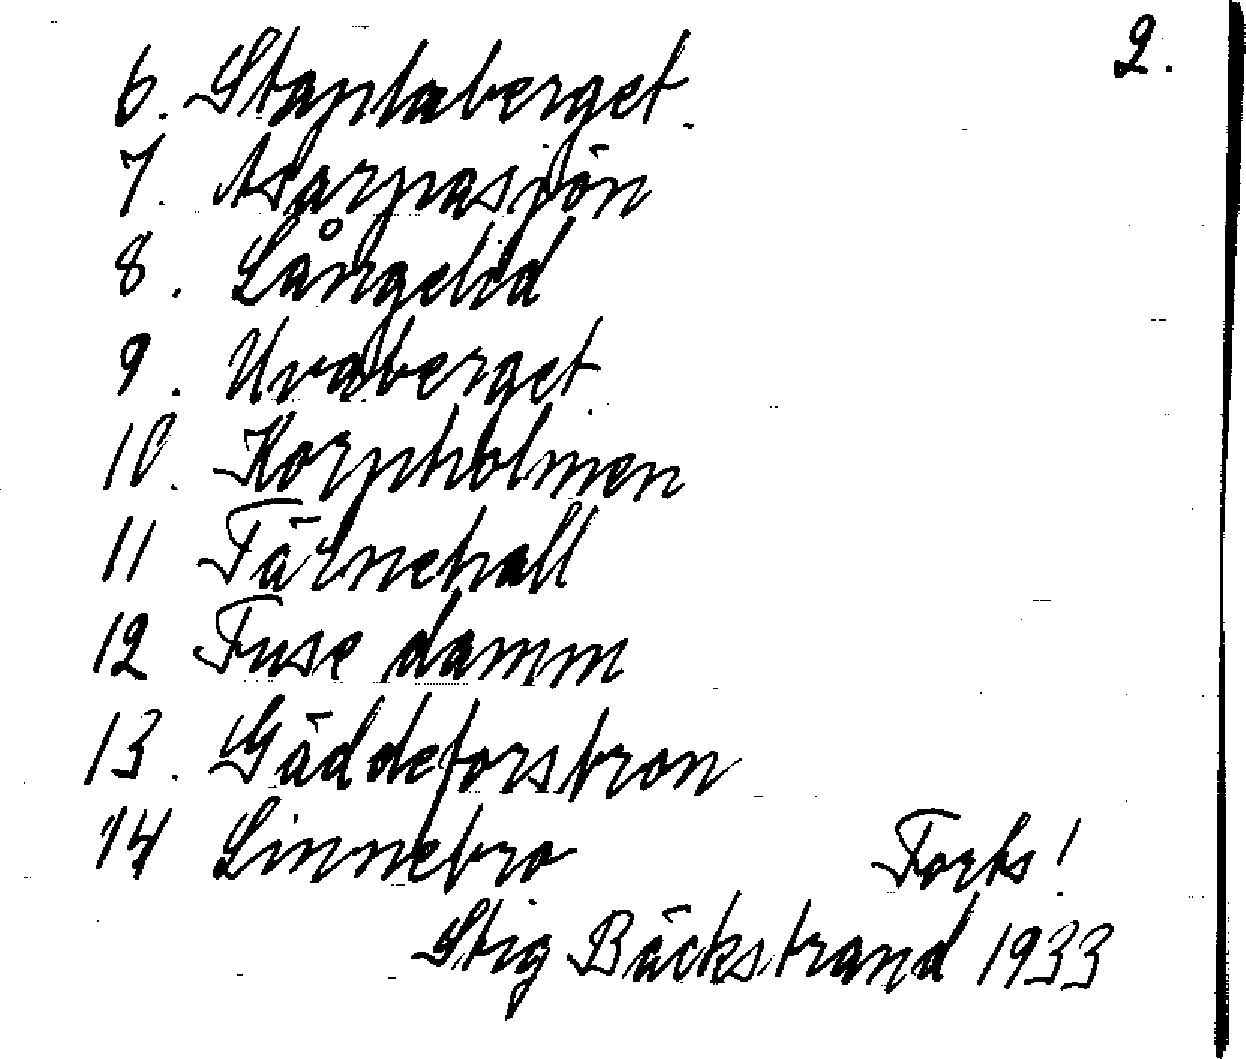 2.
6. Staplaberget.
7. Asarpasjön
8. Långelid
9. Uvaberget.
10. Korpholmen
11 Tärnehall
12 Fuse damm
13. Gäddeforsbron
14 Linnebro
Forts!
Stig Bäckstrand 1933